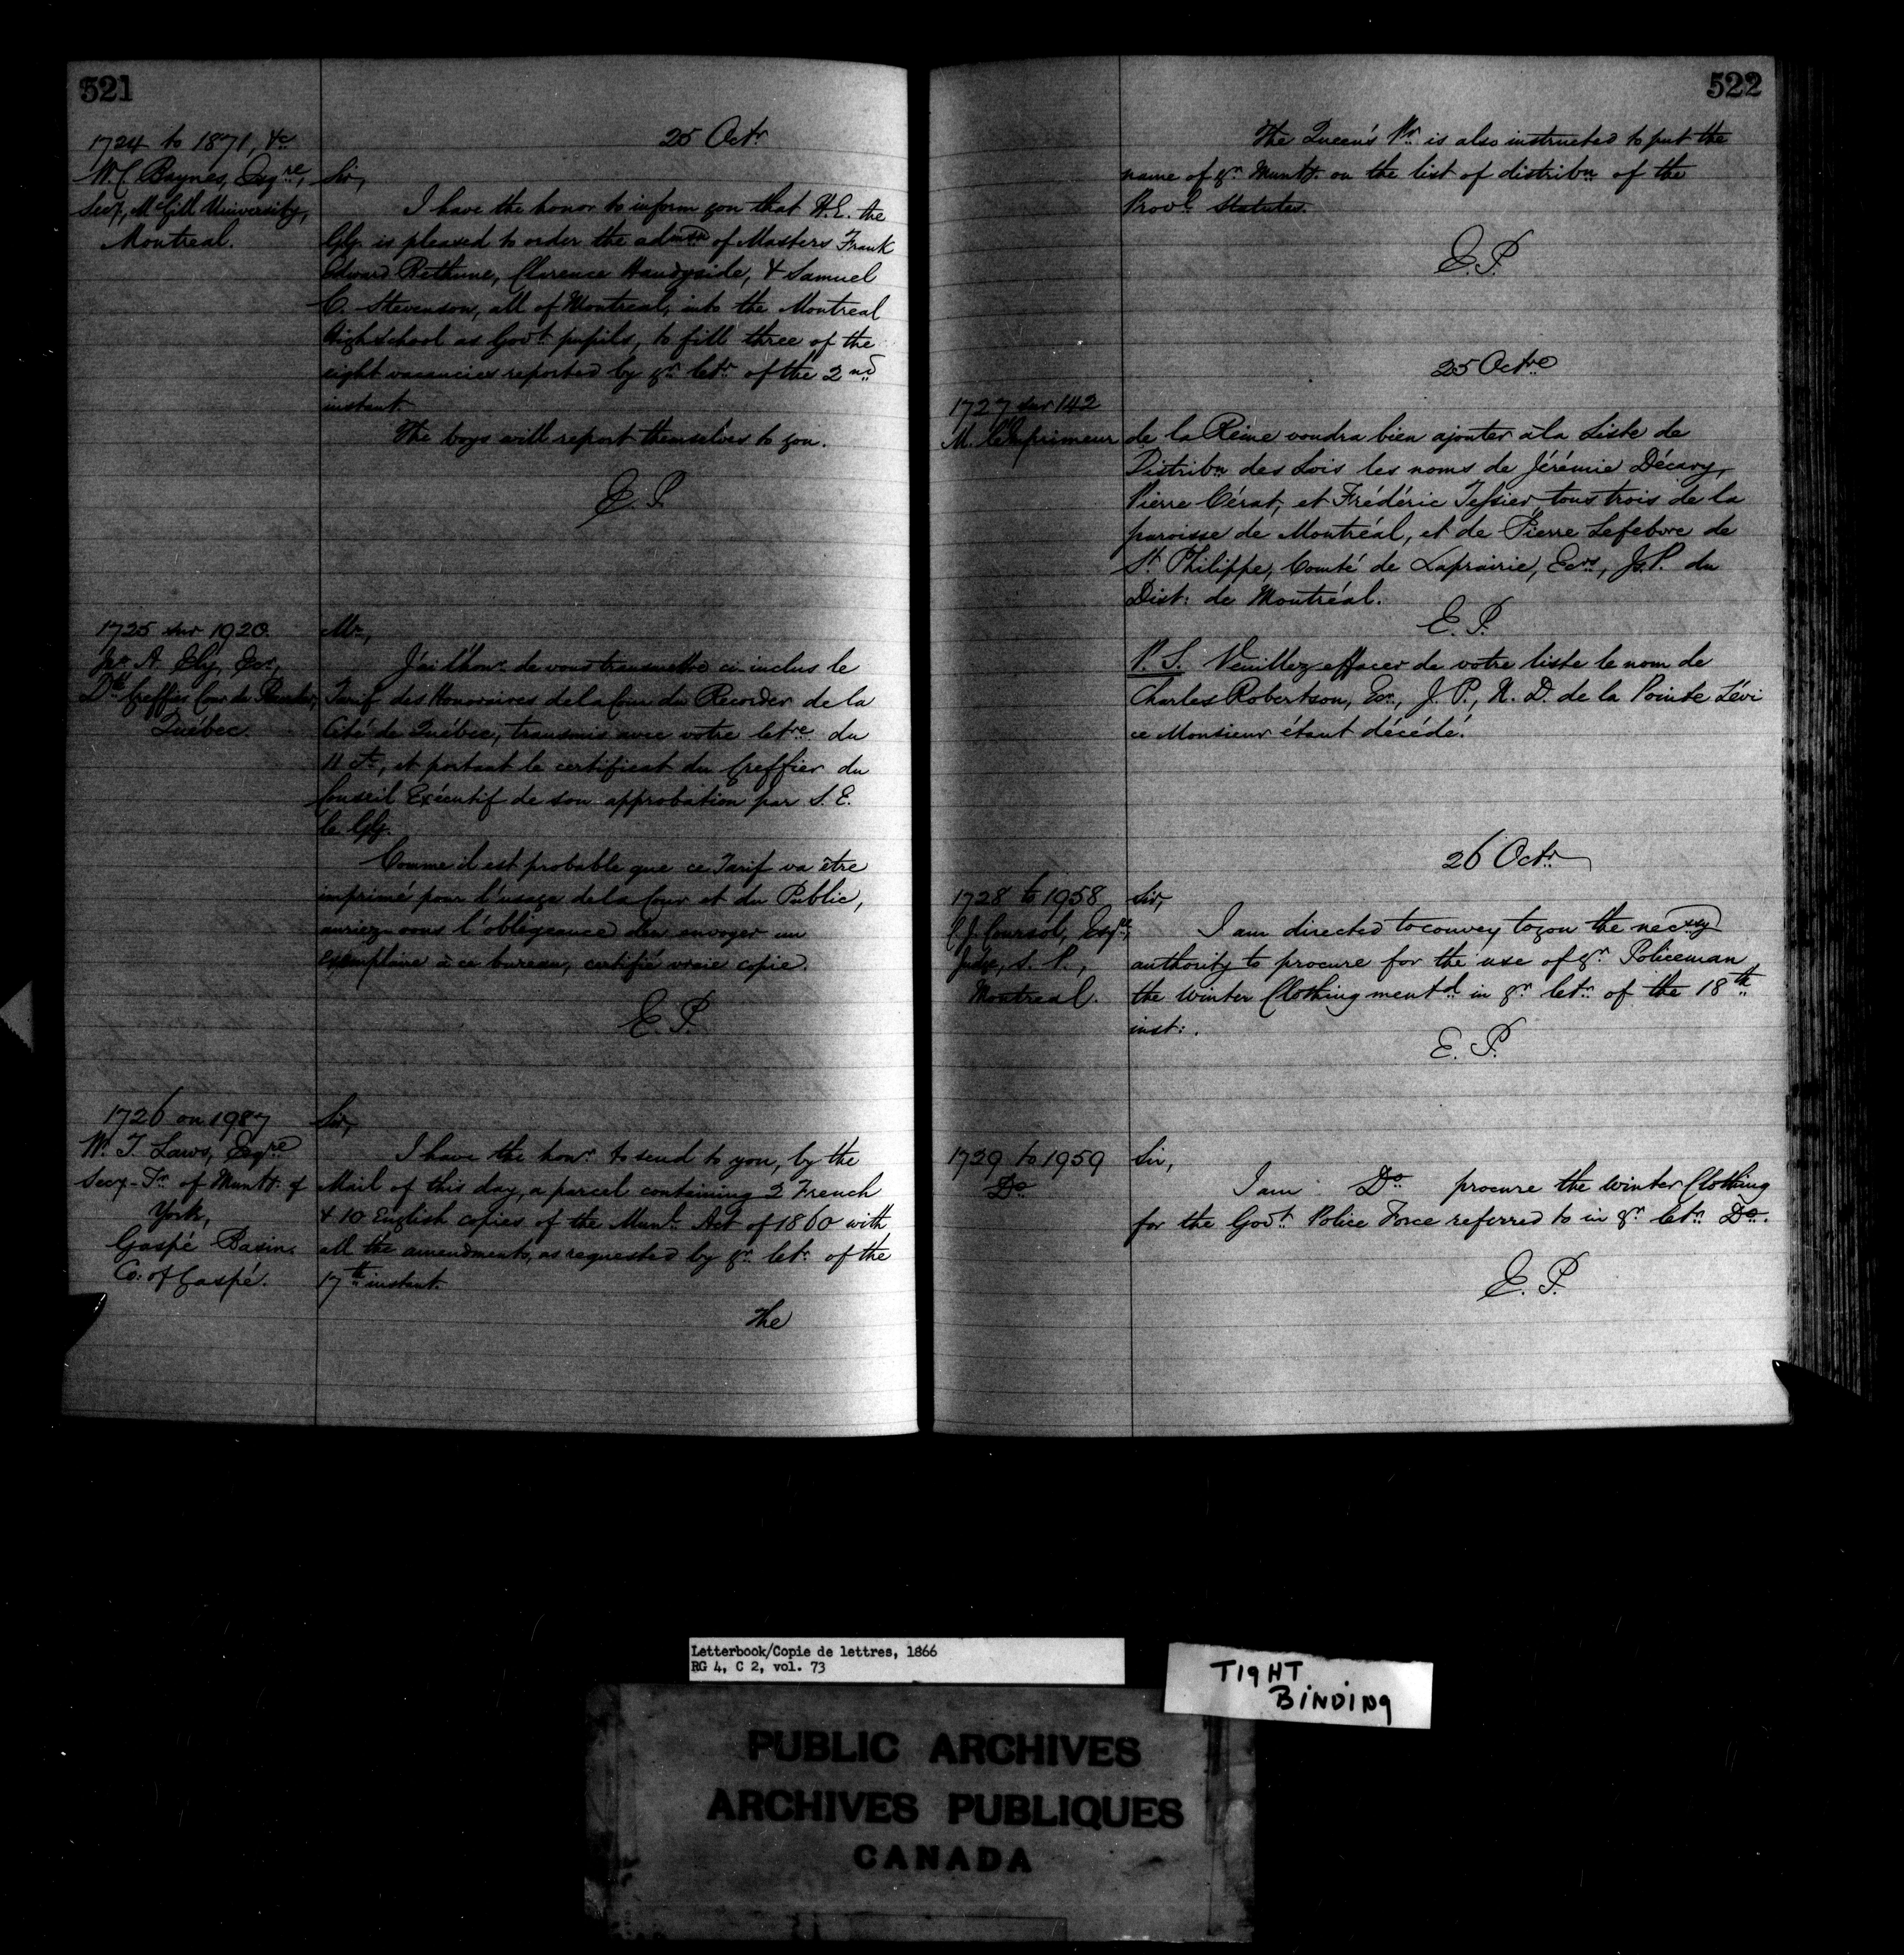 521
25 Octr
1724 to 1871, &c
W. C. Baynes, Esqre,
Secy, McGill University,
Montreal.
Sir,
I have the honor to inform you that H.E. the
Gg. is pleased to order the admssn of Masters Frank
Edward Bethune, Clarence Handyside, & Samuel
C. Stevenson, all of Montreal, into the Montreal
High School as Govt. pupils, to fill three of the
eight vacancies reported by yr. letr. of the 2nd
instant.
The boys will report themselves to you.
E. P.
1725 sur 1920.
A. Ely, Ecr,
Dté Greffier Cour du Recorder,
Québec.
Mr,
J'ai l'honr. de vous transmettre ci-inclus le
Tarif des Honoraires de la Cour du Recorder de la
Cité de Québec, transmis avec votre letre du
11 ct, et portant le certificat du Greffier du
Conseil Exécutif de son approbation par S. E.
le Gg.
Comme il est probable que ce Tarif va être
imprimé pour l'usage de la Cour et du Public,
auriez-vous l'obligeance d'en envoyer un
exemplaire à ce bureau, certifié vraie copie.
E. P.
1726 on 1987
W. T. Laws, Esqre
Secy-Tr. of Munty. of
York,
Gaspé Basin.
Co: of Gaspé.
Sir,
I have the honr. to send to you, by the
Mail of this day, a parcel containing 2 French
& 10 English copies of the Munl. Act of 1860 with
all the amendments, as requested by yr. letr. of the
17th instant.
The
522
The Queen's Pr. is also instructed to put the
name of yr. Munty. on the list of distribn of the
Provl. Statutes.
E. P.
25 Octre
1727 sur 142
M. l'Imprimeur de la Reine voudra bien ajouter à la Liste de
Distribn des Lois les noms de Jérémie Décary,
Pierre Cérat, et Frédéric Tessier, tous trois de la
paroisse de Montréal, et de Pierre Lefebvre de
St. Philippe, Comté de Laprairie, Ecrs, J.P. du
Dist: de Montréal.
E. P.
P. S. Veuillez effacer de votre liste le nom de
Charles Robertson, Ecr., J. P., N. D. de la Pointe Lévi
ce Monsieur étant décédé.
26 Octr.
1728 to 1958
C. J. Coursol, Esqre,
Judge, S. P.,
Montreal.
Sir,
I am directed to convey to you the necssy
authority to procure for the use of yr. Policeman
the Winter Clothing mentd. in yr. letr. of the 18th
inst:.
E. P.
1729 to 1959
Do
Sir,
I am Do procure the Winter Clothing
for the Govt. Police Force referred to in yr. letr. Do.
E. P.
Letterbook/Copie de lettres, 1866
RG 4, C 2, vol. 73
TIGHT
BINDING
PUBLIC ARCHIVES
ARCHIVES PUBLIQUES
CANADA